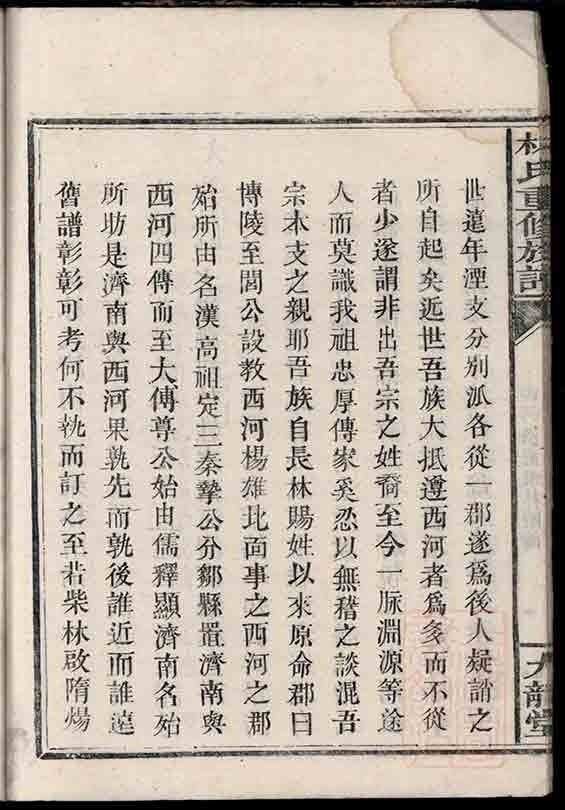 林氏重修族譜
九龍堂
世遠年湮支分別派各從一郡遂為後人疑謂之
所自起矣近世吾族大抵遵西河者為多而不從
者少遂謂非出吾宗之姓裔至今一脈淵源等途
人而莫識我祖忠厚傳家奚忍以無稽之談混吾
宗本支之親耶吾族自長林賜姓以來原命郡曰
博陵至閭公設教西河楊雄北面事之西河之郡
殆所由名漢高祖定三秦摯公分鄒縣置濟南與
西河四傳而至大傅尊公始由儒釋顯濟南名殆
所昉是濟南與西河果孰先而孰後誰近而誰遠
舊譜彰彰可考何不執而訂之至若柴林啟隋煬